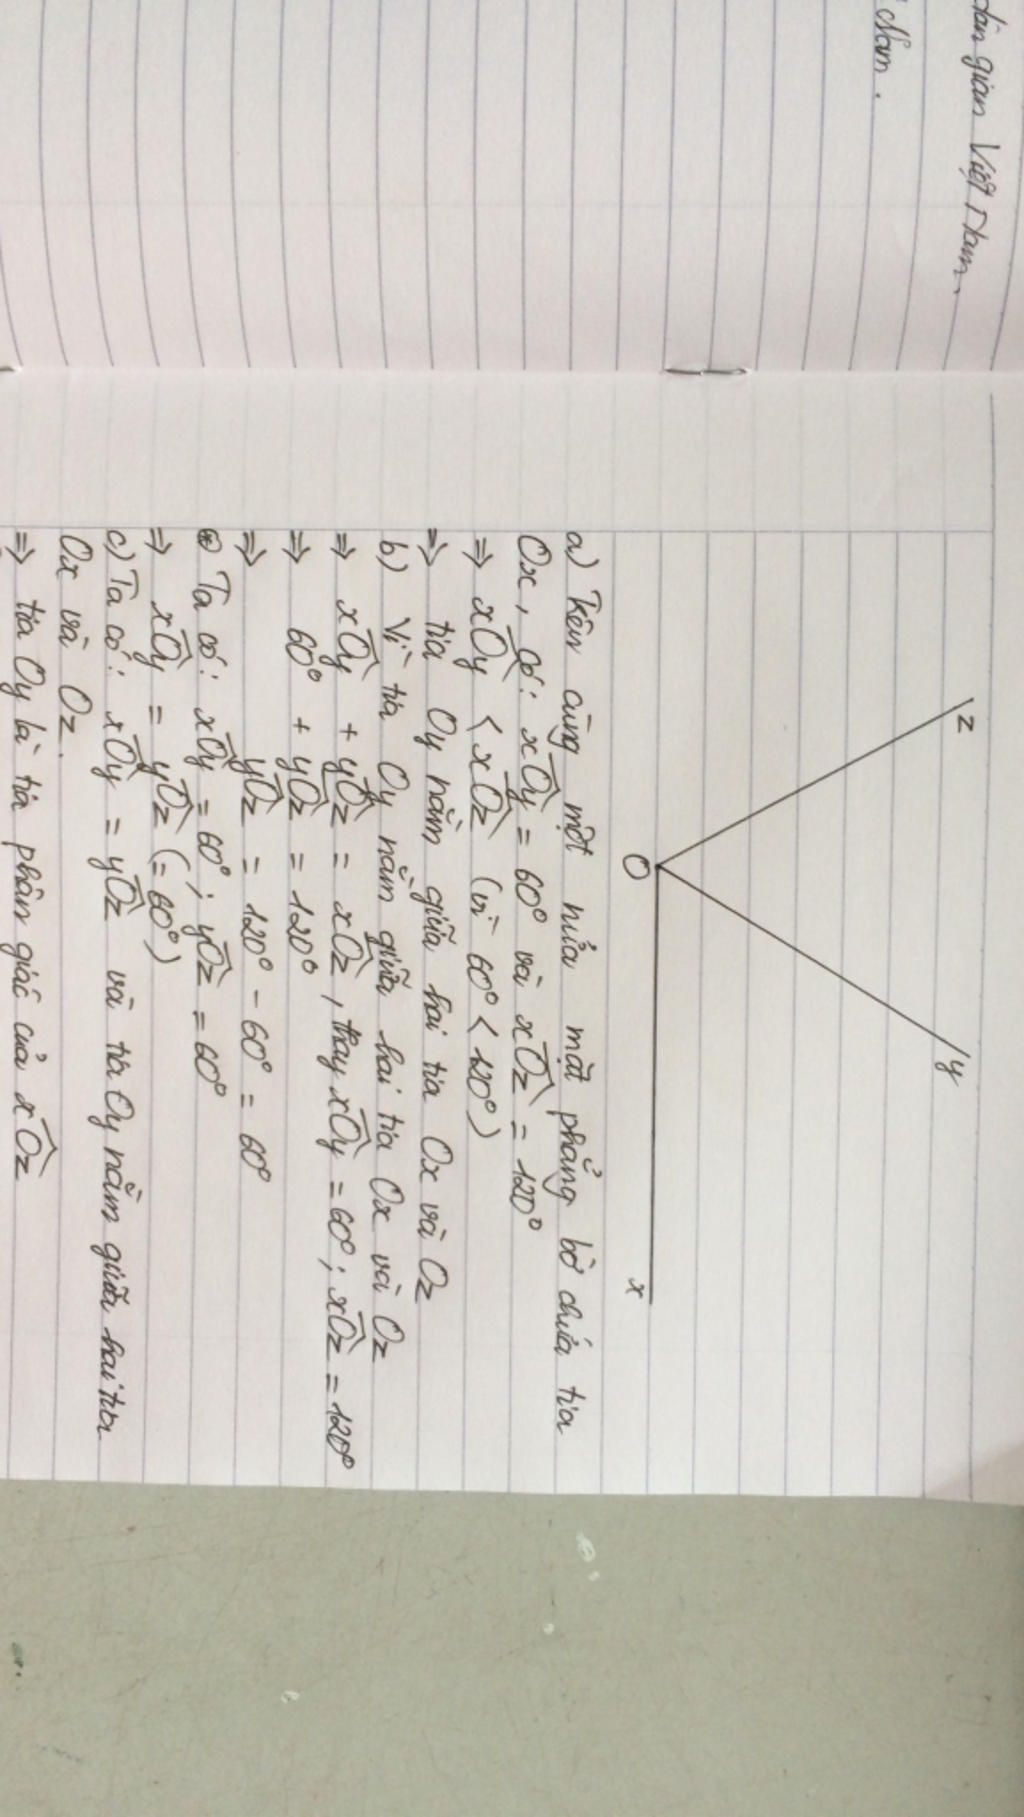 dân gian Việt Nam.
Nam.
z
y
O
x
a) Trên cùng một nửa mặt phẳng bờ chứa tia
Ox, có: xOy = 60° và xOz = 120°
=> xOy < xOz (vì 60° < 120°)
=> tia Oy nằm giữa hai tia Ox và Oz
b) Vì tia Oy nằm giữa hai tia Ox và Oz
=> xOy + yOz = xOz, thay xOy = 60°; xOz = 120°
=> 60° + yOz = 120°
=> yOz = 120° - 60° = 60°
* Ta có: xOy = 60°; yOz = 60°
=> xOy = yOz (= 60°)
c) Ta có: xOy = yOz và tia Oy nằm giữa hai tia
Ox và Oz.
=> tia Oy là tia phân giác của xOz